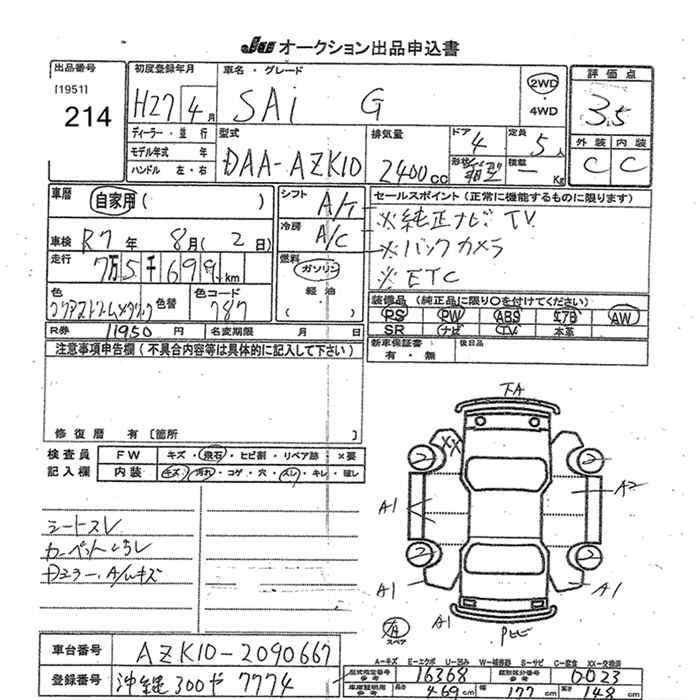 JU オークション出品申込書
出品番号
[1951]
214
初度登録年月
H27 4月
車名・グレード
SAi G
2WD
・
4WD
評価点
3.5
外装 内装
C C
ディーラー・並行
モデル年式 年
ハンドル 左・右
型式
DAA-AZK10
排気量
2400cc
ドア 4
形状
定員 5人
積載 ー Kg
車歴
自家用( )
シフト A/T
冷房 A/C
車検 R7年 8月(2日)
走行 7万5千699km
燃料
ガソリン
・
軽油
( )
色
色替
色コード
787
セールスポイント(正常に機能するものに限ります)
※純正ナビ TV
※バックカメラ
※ETC
装備品(純正品に限り○を付けてください)
PS PW ABS エアB AW
SR ナビ TV 本革
R券 11950円 名変期限 月 日
新車保証書 有・無
後日品
注意事項申告欄(不具合内容等は具体的に記入して下さい)
修復歴 有〔箇所 〕
検査員記入欄
FW キズ・飛石・ヒビ割・リペア跡・×要
内装 キズ・汚れ・コゲ・穴・スレ・キレ・ほし
シートスレ
カーペット汚レ
Dミラー、A/Wキズ
下A
XX
2 2
A1 A2
2 2
A1 A1
A1
スペア
A-キズ E-エクボ U-凹み W-補修跡 S-サビ C-腐食 XX-交換済
車台番号 AZK10-2090667
登録番号 沖縄 300 や 7774
型式指定番号 参考 16368 類別区分番号 参考 0023
車庫証明用 参考 長さ 469cm 幅 177cm 高さ 148cm